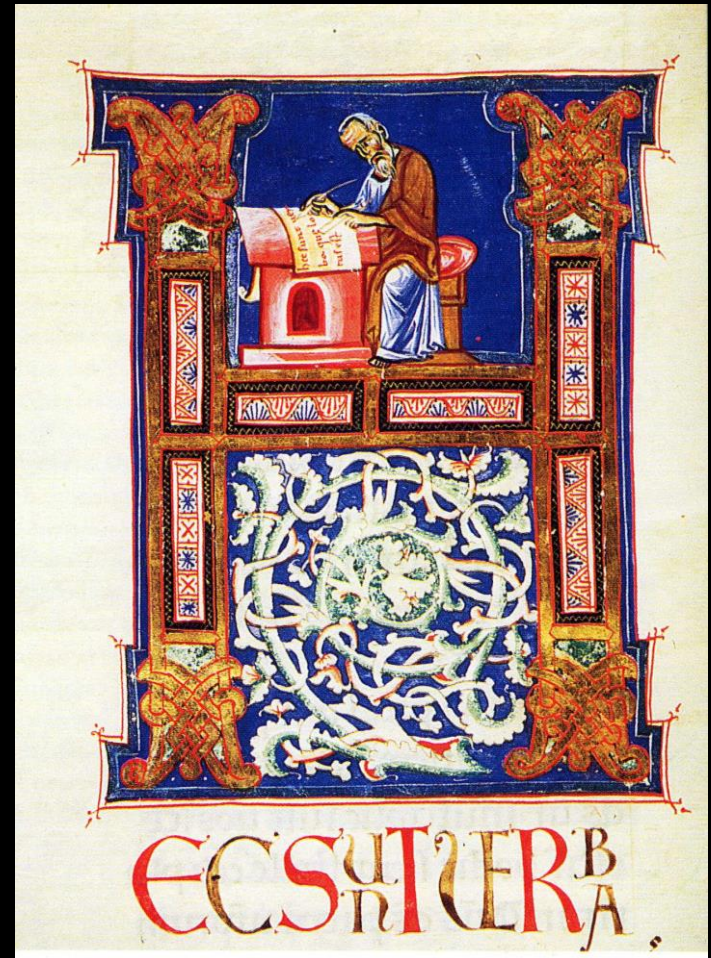 H
hec sunt
ba que lo
tus est
ECSUNTUERBA